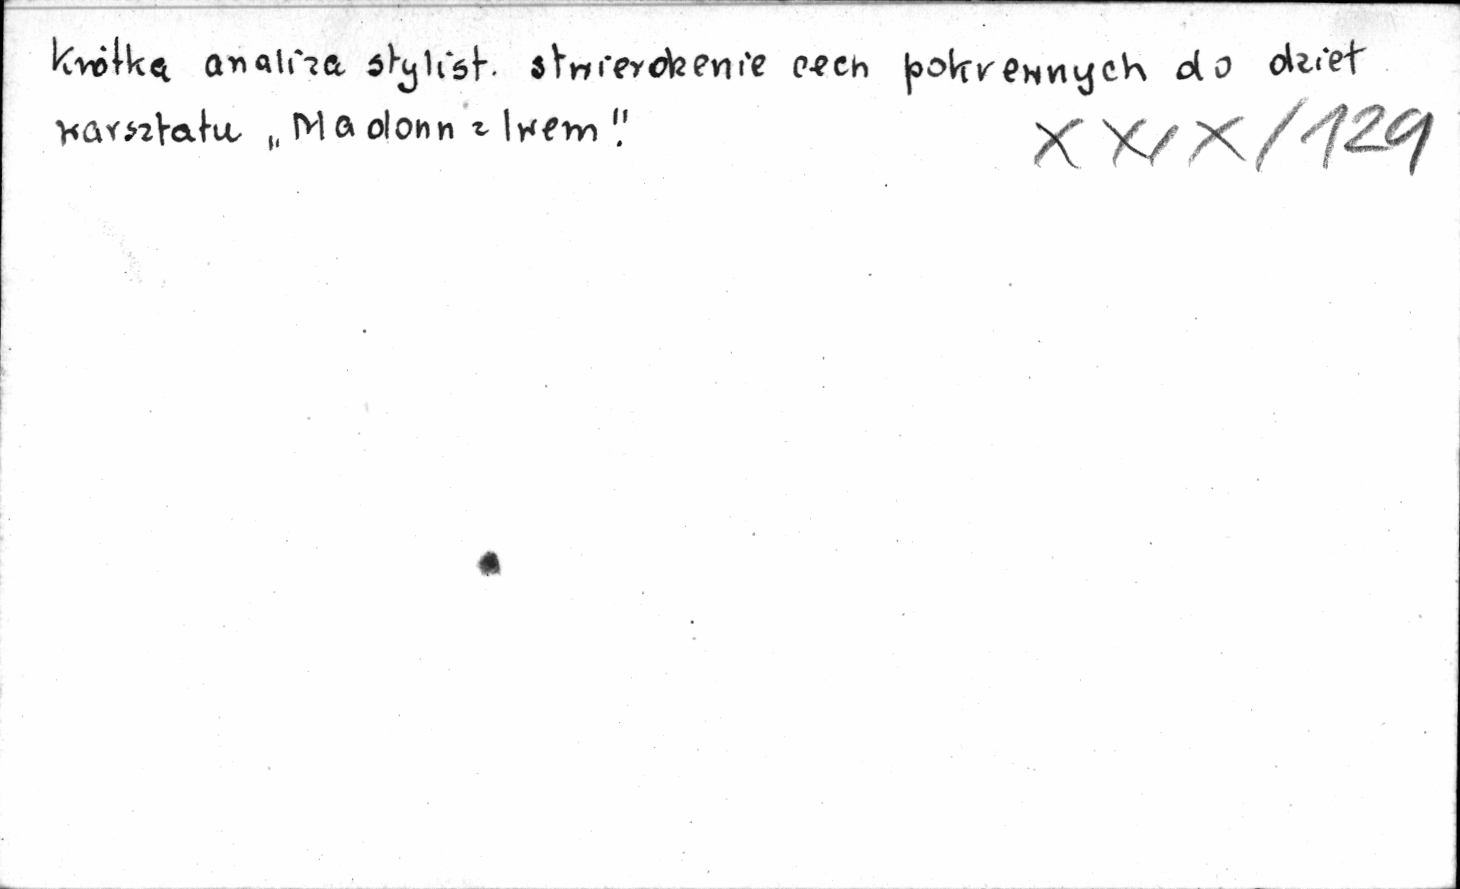 Krótka analiza stylist. stwierdzenie cech pokrewnych do dzieł
warsztatu „Madonn z lwem".
XXIX/129